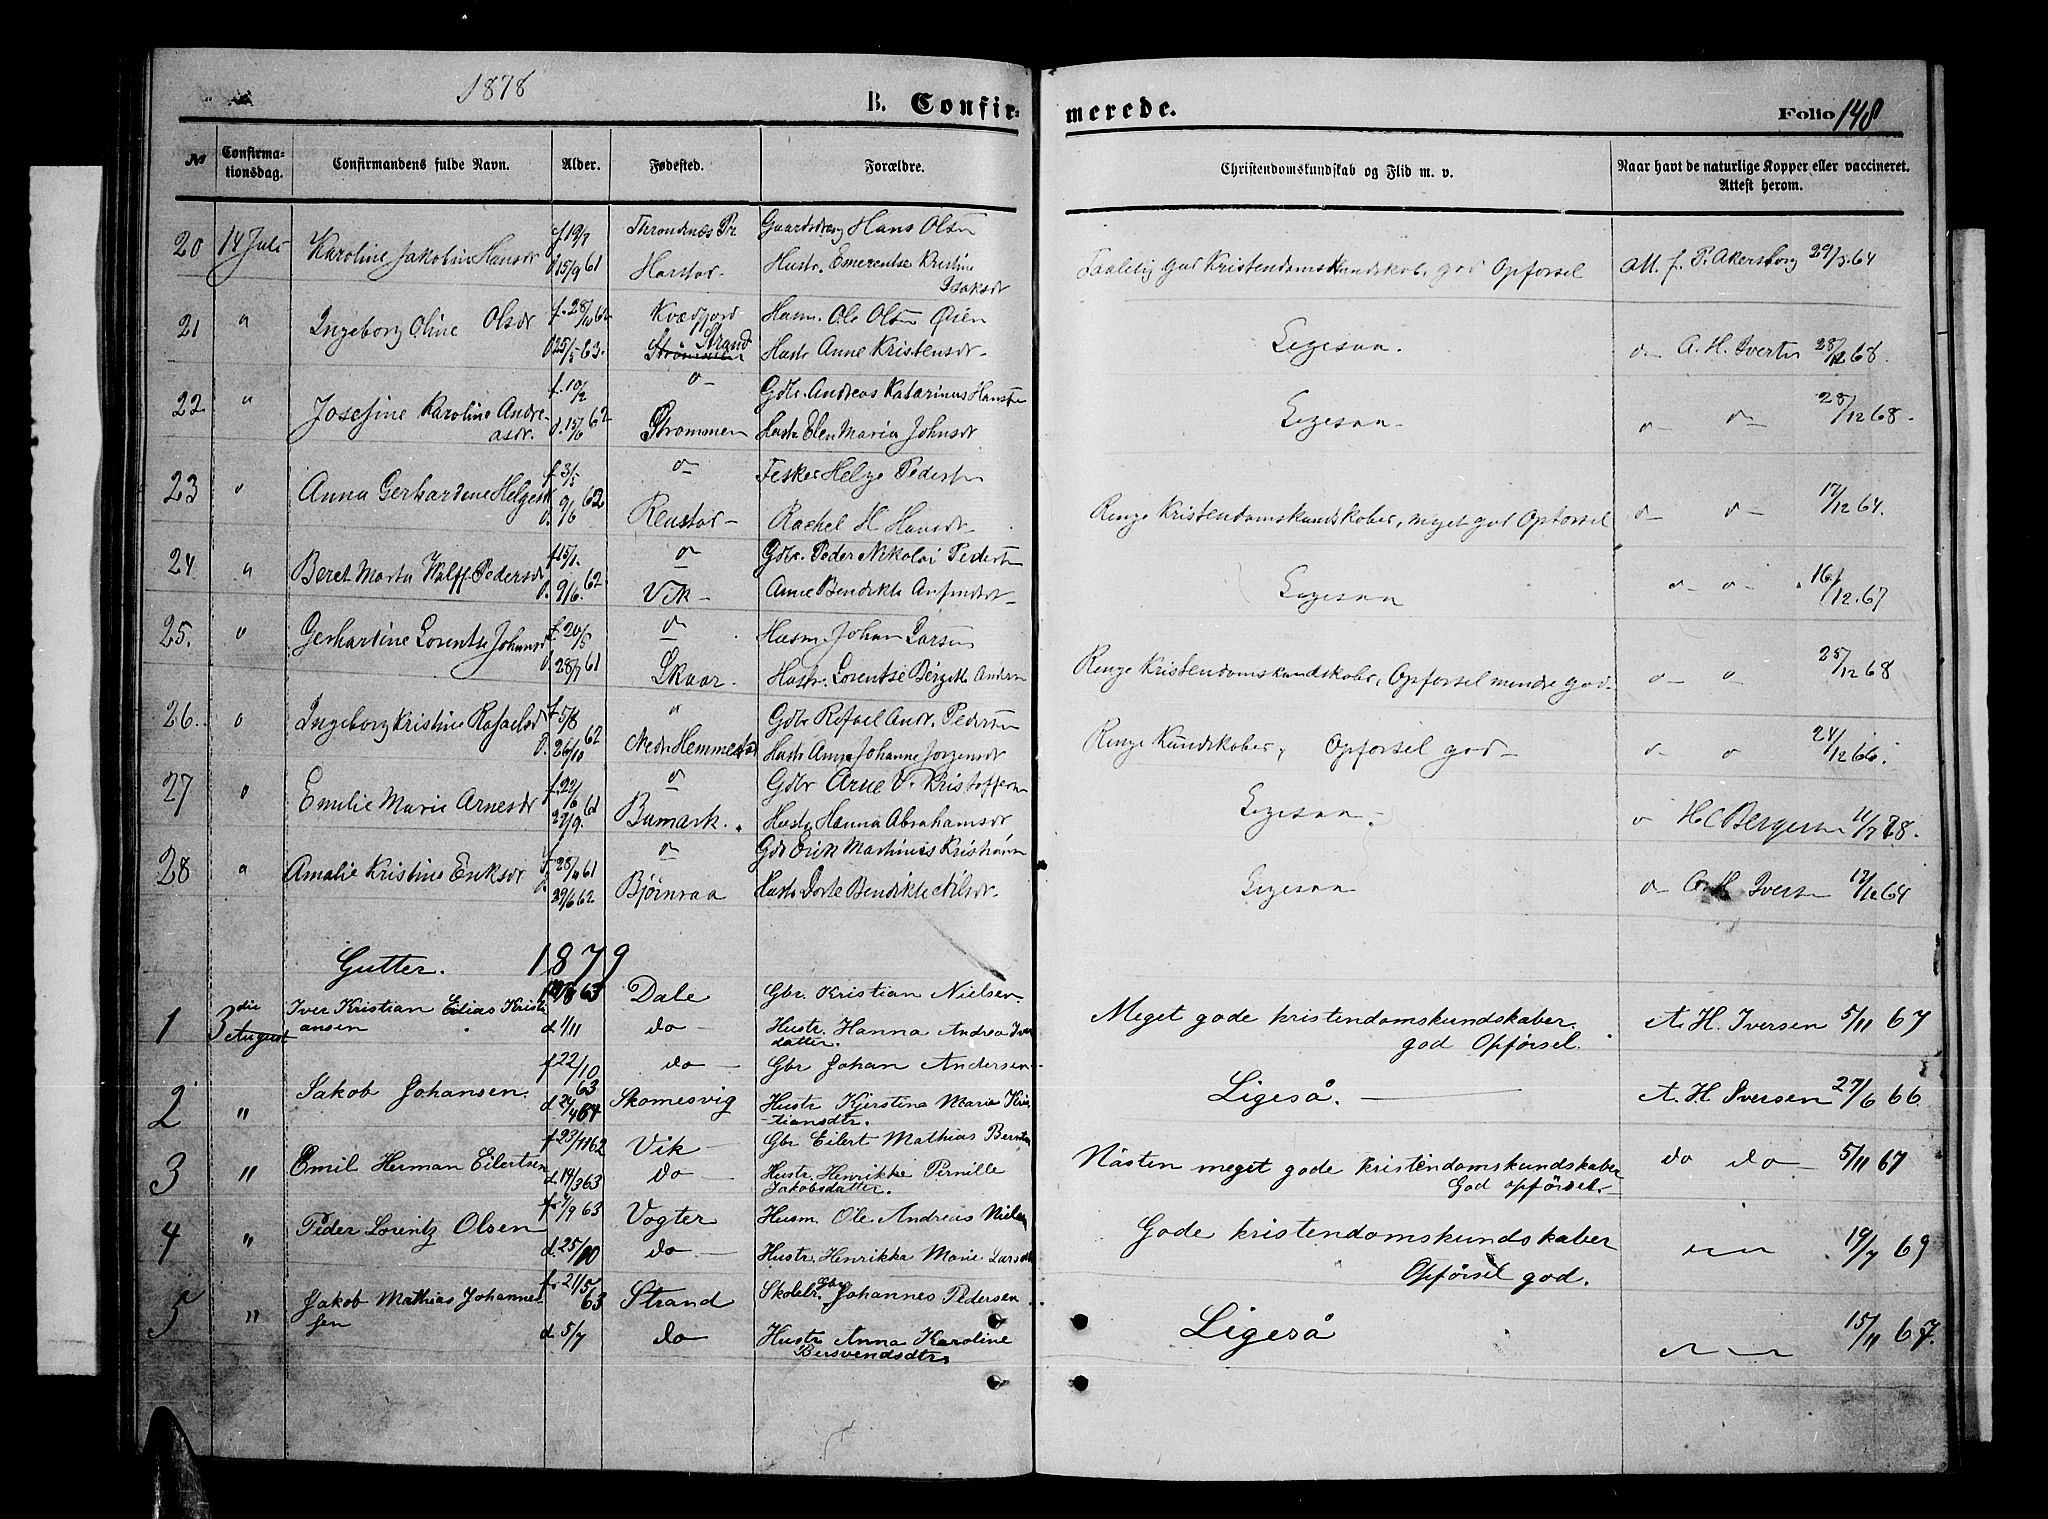 1878
B. Confir-
merede.
Folio 148
№
Confirma-
tionsdag.
Confirmandens fulde Navn.
Alder.
Fødested.
Forældre.
Christendomskundskab og Flid m. v.
Naar havt de naturlige Kopper eller vaccineret.
Attest herom.
20 14 Juli Karoline Jakobine Hansdr f. 19/7 Throndenæs Pr. Hans Olsen
d. 15/9 61 Harstad Hustr. Emerentse Kristine
Isaksdr
Taalelig god Kristendomskundskab, god Opførsel
Att. f. P. Akersborg 29/5 64
21 " Ingeborg Oline Olsdr f. 28/10 62 Kvædfjord Husm. Ole Olsen Øien
d. 25/5 63. Strand Hustr Anne Kristensdr
Strømmen
Ligesaa. do A. H. Iversen 28/12 68.
22 " Josefine Karoline Andre-
asdr. f. 10/2 do Gdbr. Andreas Katarinus Hansen
d. 15/6 62 Strømmen Hustr Elen Maria Johnsdr
Ligesaa do do 28/12 68.
23 " Anna Gerhardine Helgesdr f. 3/5 do Fisker Helge Pedersen
d. 9/6 62 Renstad Rachel H Hansdr
Ringe Kristendomskundskaber, meget god Opførsel do do 17/12 64.
24 " Beret Marta Wulff Pedersdr f. 15/1. do Gdbr. Peder Nikolai Pedersen
d. 9/6. 62 Vik Ane Bendikte Anfindsdr
Ligesaa do do 16/12 67
25. " Gerhardine Lorentse Johansdr f. 20/5 do Husm. Johan Larsen
d. 28/7 61 Skaar. Hustr. Lorentse Bergitte Andersdr
Ringe Kristendomskundskaber, Opførsel mindre god do do 25/12 68
26. " Ingeborg Kristine Rafaelsdr f. 5/8 " Gdbr Rafael Andr. Pedersen
d. 26/10 62 Nedr Hemmestad Hustr Anne Johanne Jørgensdr
Ringe Kundskaber, Opførsel god do do 24/12 66.
27 " Emilie Marie Arnesdr f. 22/6 do Gdbr Arne V. Kristoffersen
27/9. 61 Bumark. Hustr Hanna Abrahamsdr
Ligesaa. do H C Bergersen 11/7 78.
28 " Amalie Kristine Eriksdr f. 61 do Gdbr Erik Martinus Kristiansen
d. 29/6 62 Bjørnraa Hustr Dorte Bendikte Nilsdr
Ligesaa do A. H. Iversen 12/12 64
Gutter. 1879
1 3die
August Iver Kristian Elias Kristi-
ansen 63 Dale Gbr. Kristian Nielsen
d. 1/11 do Hustr. Hanna Andrea Ivers
datter.
Meget gode kristendomskundskaber.
god Opførsel. A. H. Iversen 5/11 67
2 " Jakob Johansen. f. 22/10 63 do Gbr Johan Andersen
d. 24/4 64 Skomesvig Hustr Kjerstina Marie Kris-
tiansdtr.
Ligeså. A. H Iversen 27/6 66.
3 " Emil Herman Eilertsen f. 23/11 62 Vik Gbr Eilert Mathias Berntsen
d. 14/3 63 do Hustr. Henrikke Pernille
Jakobsdatter.
Nästen meget gode kristendomskundskaber
God opførsel. do do 5/11 67
4 " Peder Lorentz Olsen f. 7/9 63 Vogter Husm. Ole Andreas Nielsen
d. 25/10 do Hustr. Henrikka Marie Larsdtr
Gode kristendomskundskaber
Opførsel god. 19/7 69
5 " Jakob Mathias Johannes-
sen f. 21/5 63 Strand Skolelr. Gbr Johannes Pedersen
d. 5/7 do Hustr Anna Karoline
Bersvendsdtr
Ligeså 15/11 67.